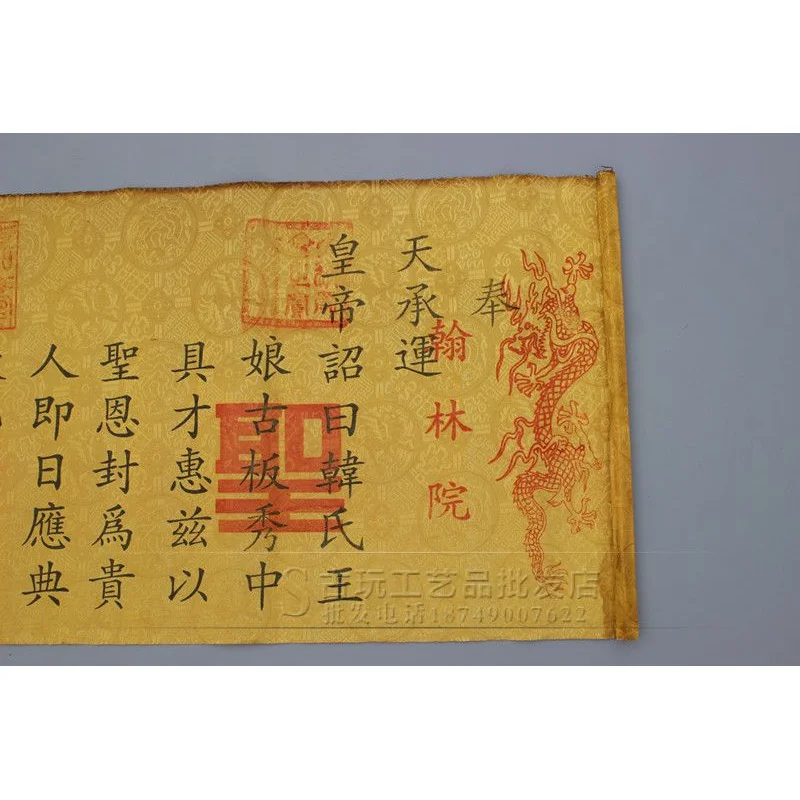 奉
天承運
翰林院
皇帝詔曰韓氏王
娘古板秀中
具才惠兹以
聖恩封爲貴
人即日應典
聖
古玩工艺品批发店
批发电话18749007622